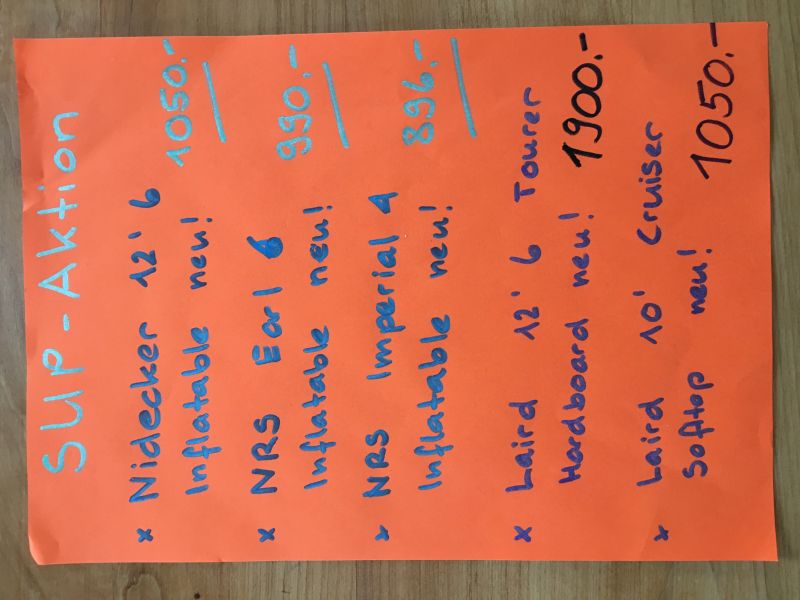 SUP-Aktion
x Nidecker 12'6
Inflatable neu! 1050.-
x NRS Earl 6
Inflatable neu! 990.-
x NRS Imperial 4
Inflatable neu! 896.-
x Laird 12'6 Tourer
Hardboard neu! 1900.-
x Laird 10' Cruiser
Softtop neu! 1050.-